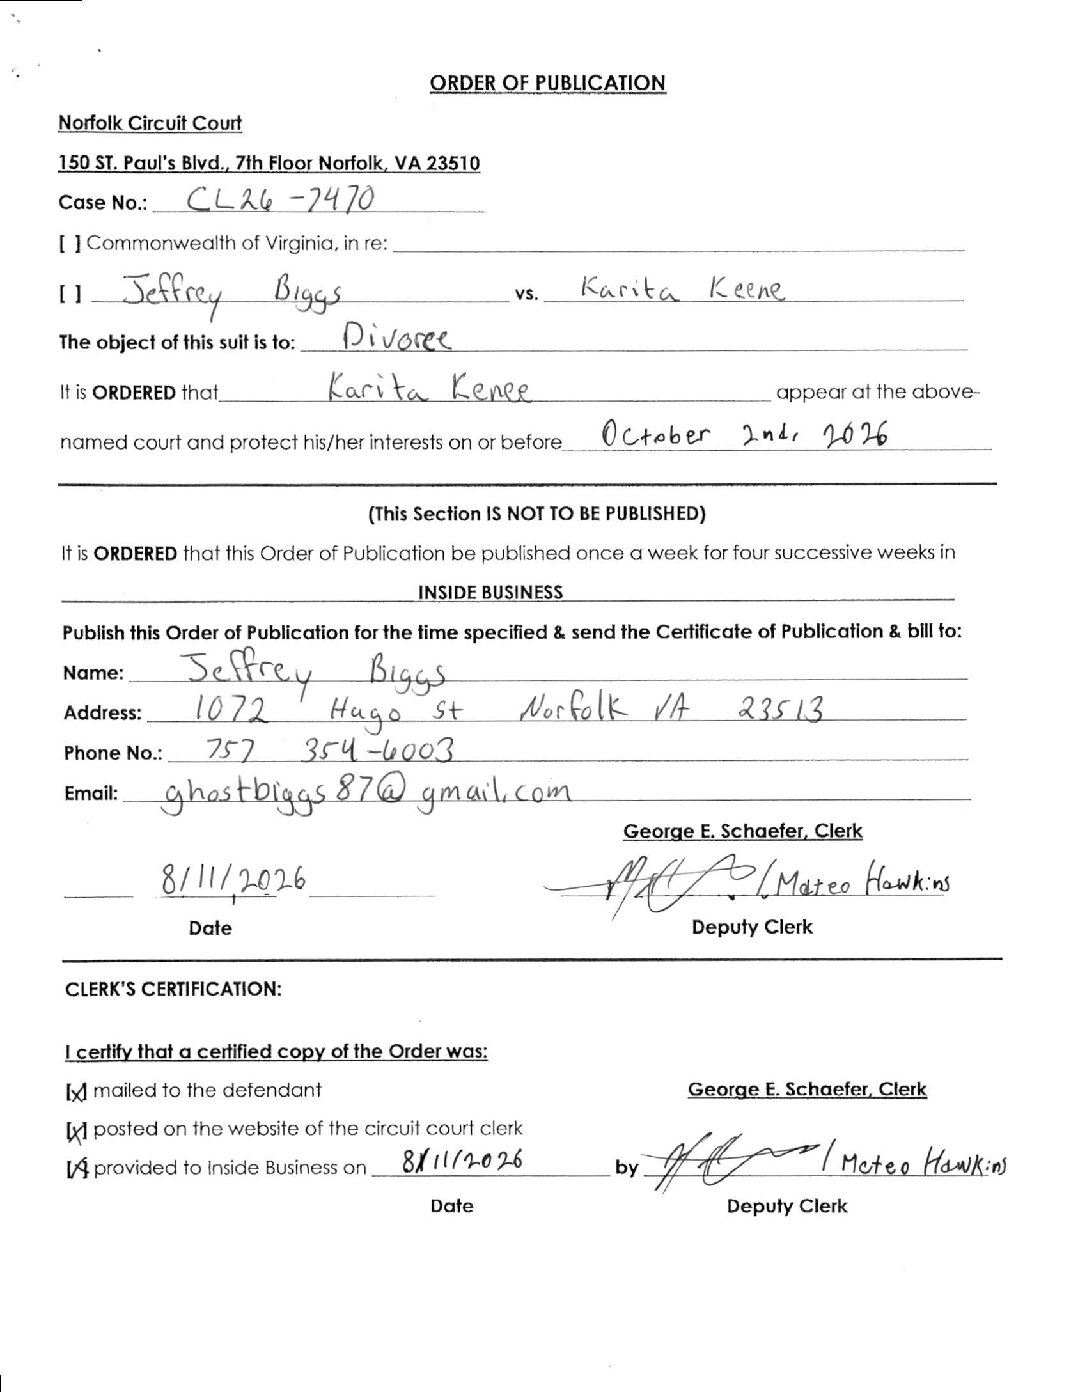 ORDER OF PUBLICATION
Norfolk Circuit Court
150 ST. Paul's Blvd., 7th Floor Norfolk, VA 23510
Case No.: CL26-7470
[ ] Commonwealth of Virginia, in re:
[ ] Jeffrey Biggs vs. Karita Keene
The object of this suit is to: Divorce
It is ORDERED that Karita Kenee appear at the above-
named court and protect his/her interests on or before October 2nd, 2026
(This Section IS NOT TO BE PUBLISHED)
It is ORDERED that this Order of Publication be published once a week for four successive weeks in
INSIDE BUSINESS
Publish this Order of Publication for the time specified & send the Certificate of Publication & bill to:
Name: Jeffrey Biggs
Address: 1072 Hugo St Norfolk VA 23513
Phone No.: 757 354-6003
Email: ghostbiggs87@gmail.com
George E. Schaefer, Clerk
8/11/2026 / Mateo Hawkins
Date Deputy Clerk
CLERK'S CERTIFICATION:
I certify that a certified copy of the Order was:
[x] mailed to the defendant George E. Schaefer, Clerk
[x] posted on the website of the circuit court clerk
[x] provided to Inside Business on 8/11/2026 by / Mateo Hawkins
Date Deputy Clerk